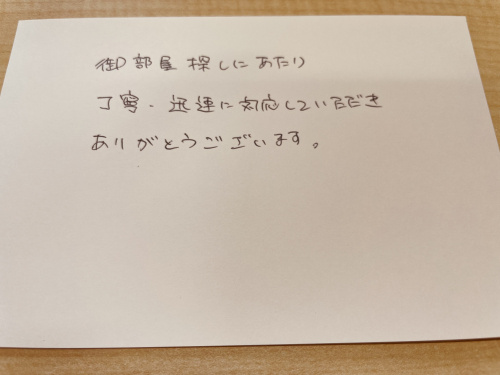 御部屋探しにあたり
丁寧・迅速に対応していただき
ありがとうございます。